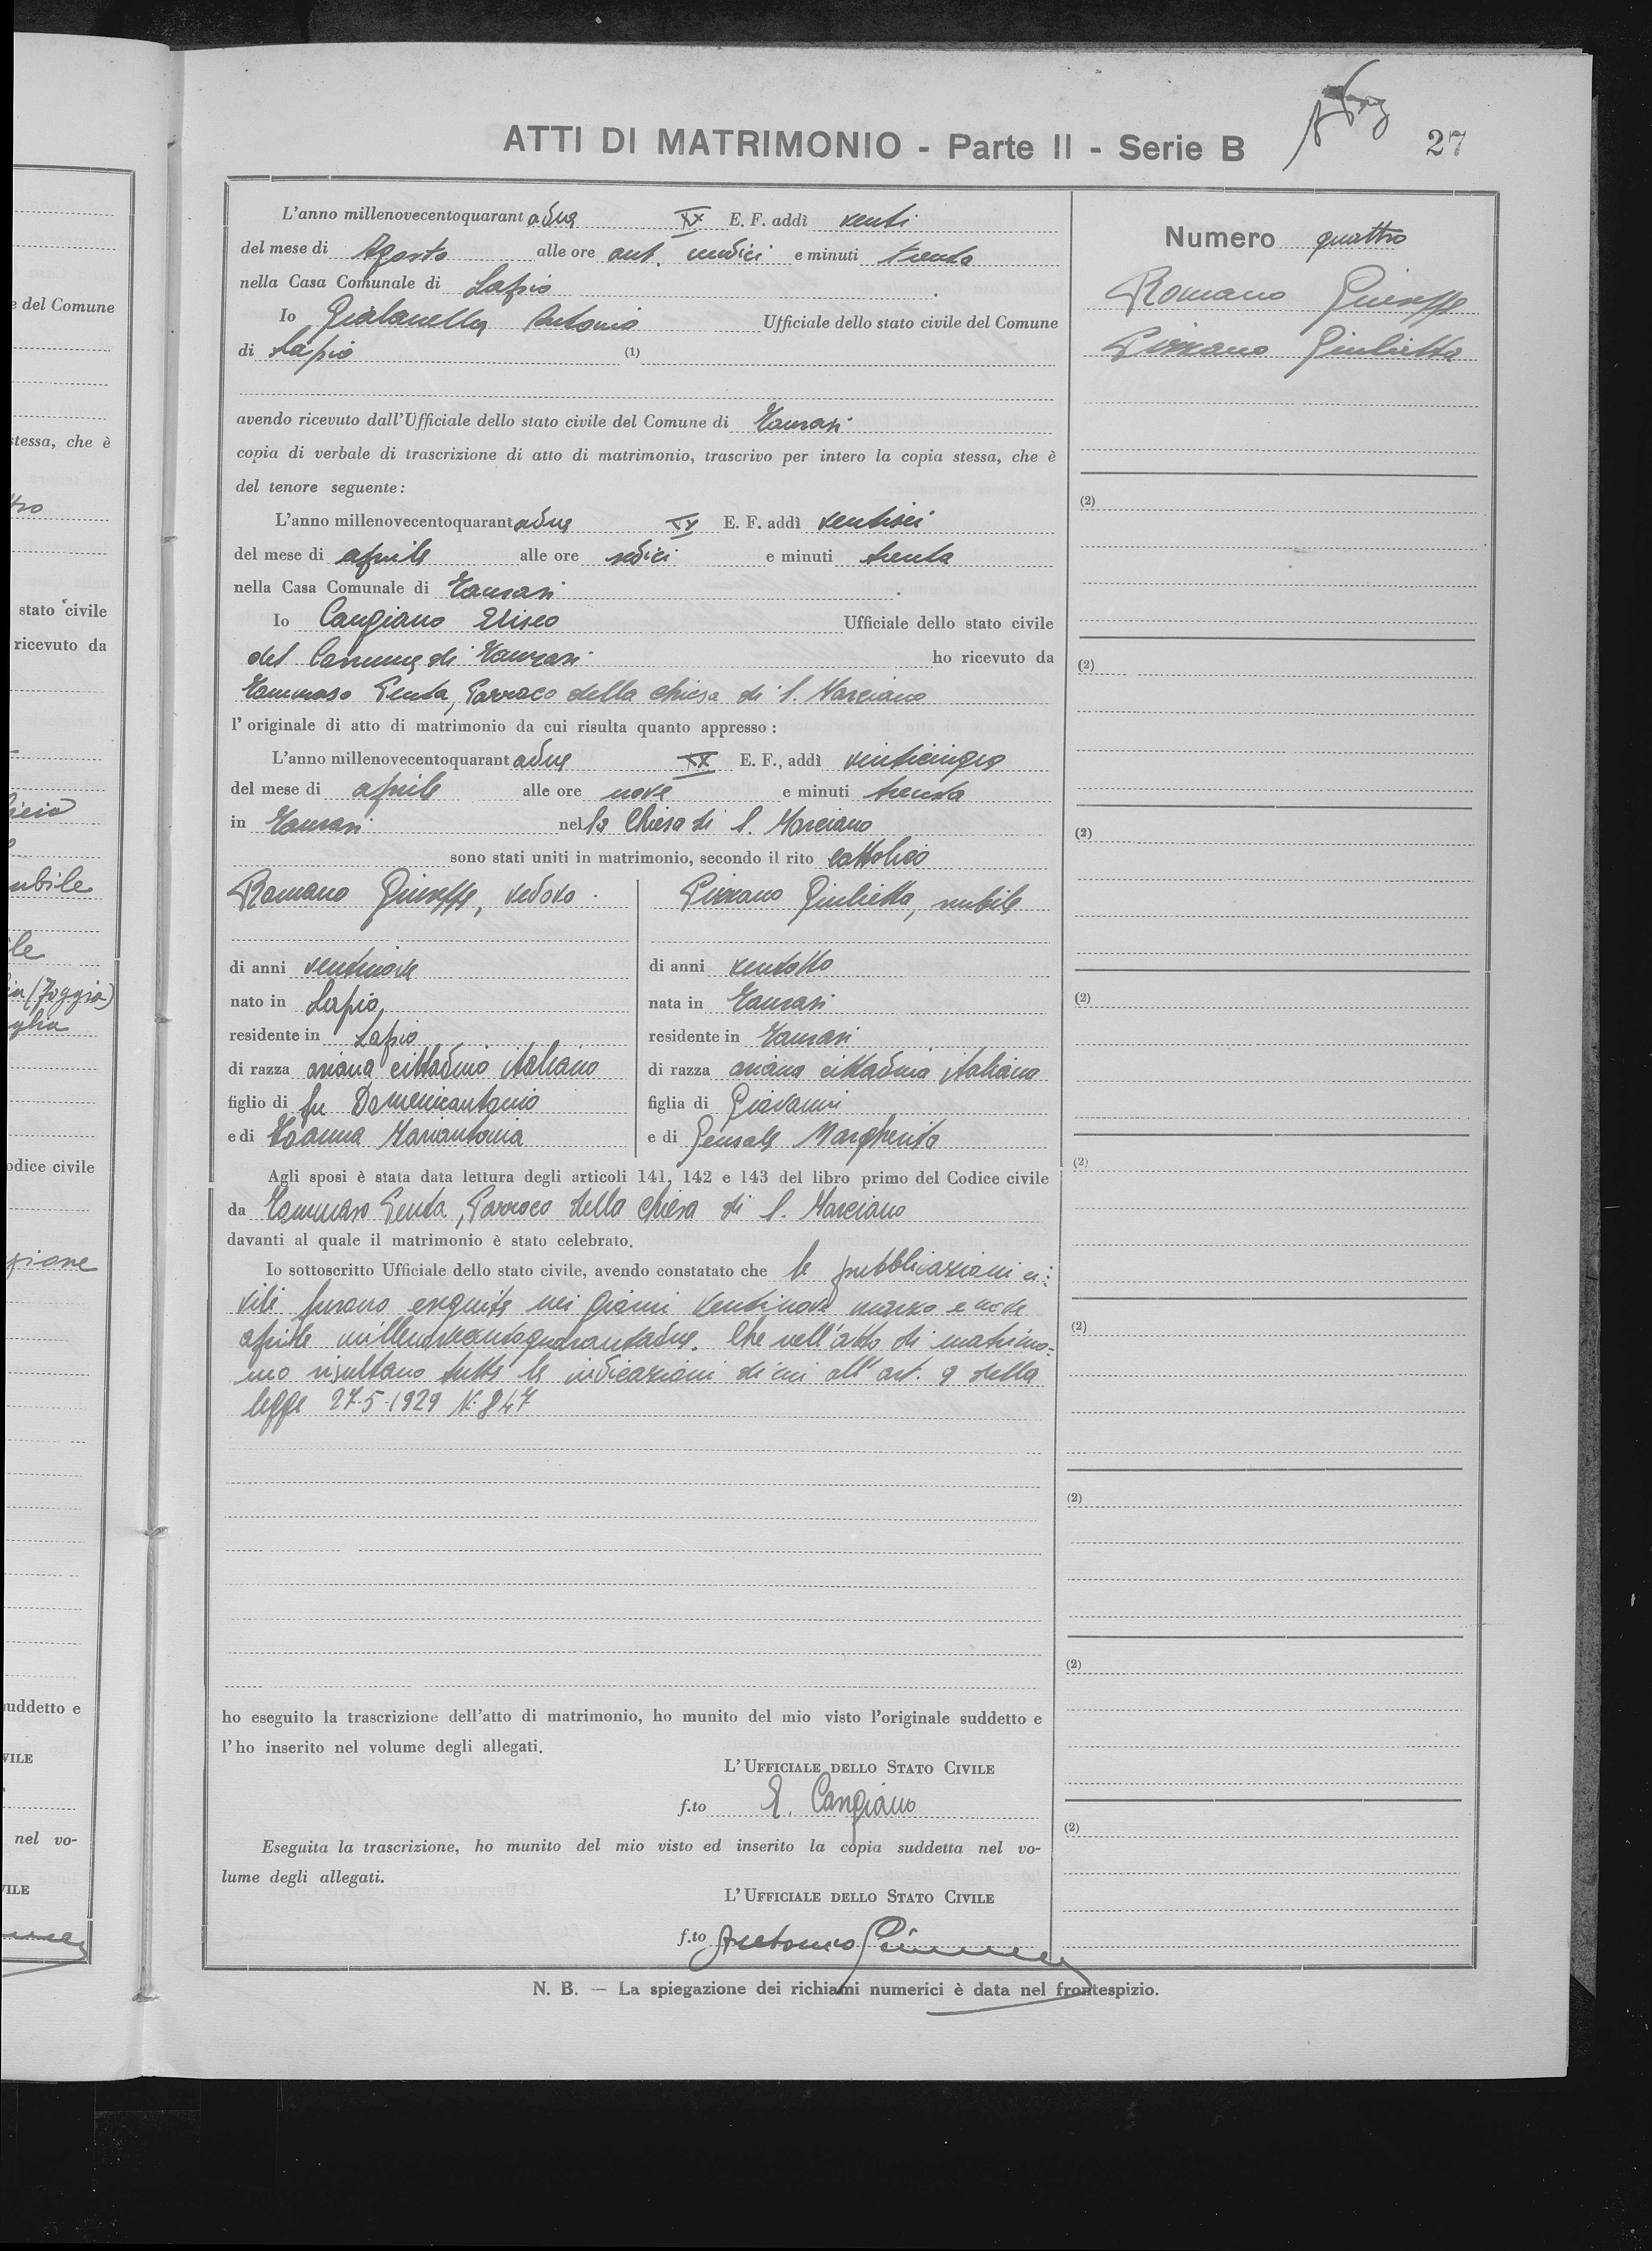 27
ATTI DI MATRIMONIO - Parte II - Serie B
L'anno millenovecentoquarantadue XX E. F. addì venti
del mese di Agosto alle ore ant. undici e minuti trenta
nella Casa Comunale di Lapio
Io Gialanella Antonio Ufficiale dello stato civile del Comune
di Lapio (1)
avendo ricevuto dall'Ufficiale dello stato civile del Comune di Taurasi
copia di verbale di trascrizione di atto di matrimonio, trascrivo per intero la copia stessa, che è
del tenore seguente:
L'anno millenovecentoquarantadue XX E. F. addì ventisei
del mese di aprile alle ore sedici e minuti trenta
nella Casa Comunale di Taurasi
Io Cangiano Eliseo Ufficiale dello stato civile
del Comune di Taurasi ho ricevuto da
Tommaso Penta, Parroco della chiesa di S. Marciano
l'originale di atto di matrimonio da cui risulta quanto appresso:
L'anno millenovecentoquarantadue XX E. F., addì venticinque
del mese di aprile alle ore nove e minuti trenta
in Taurasi nella Chiesa di S. Marciano
sono stati uniti in matrimonio, secondo il rito cattolico
Romano Giuseppe, vedovo
di anni ventinove
nato in Lapio
residente in Lapio
di razza ariana cittadino italiano
figlio di fu Domenicantonio
e di Mariantonia
Pizzano Giulietta, nubile
di anni ventotto
nata in Taurasi
residente in Taurasi
di razza ariana cittadina italiana
figlia di Giovanni
e di Margherita
Agli sposi è stata data lettura degli articoli 141, 142 e 143 del libro primo del Codice civile
da Tommaso Penta, Parroco della chiesa di S. Marciano
davanti al quale il matrimonio è stato celebrato.
Io sottoscritto Ufficiale dello stato civile, avendo constatato che le pubblicazioni ci:
vili furono eseguite nei giorni ventinove marzo e nove
aprile millenovecentoquarantadue. Che nell'atto di matrimo=
nio risultano tutte le indicazioni di cui all'art. 9 della
legge 27-5-1929 N. 847
ho eseguito la trascrizione dell'atto di matrimonio, ho munito del mio visto l'originale suddetto e
l'ho inserito nel volume degli allegati.
L'UFFICIALE DELLO STATO CIVILE
f.to E. Cangiano
Eseguita la trascrizione, ho munito del mio visto ed inserito la copia suddetta nel vo-
lume degli allegati.
L'UFFICIALE DELLO STATO CIVILE
f.to Antonio
N. B. — La spiegazione dei richiami numerici è data nel frontespizio.
Numero quattro
Romano Giuseppe
Pizzano Giulietta
(2)
(2)
(2)
(2)
(2)
(2)
(2)
(2)
(2)
e del Comune
stessa, che è
stato civile
ricevuto da
nubile
(Foggia)
odice civile
suddetto e
VILE
nel vo-
VILE